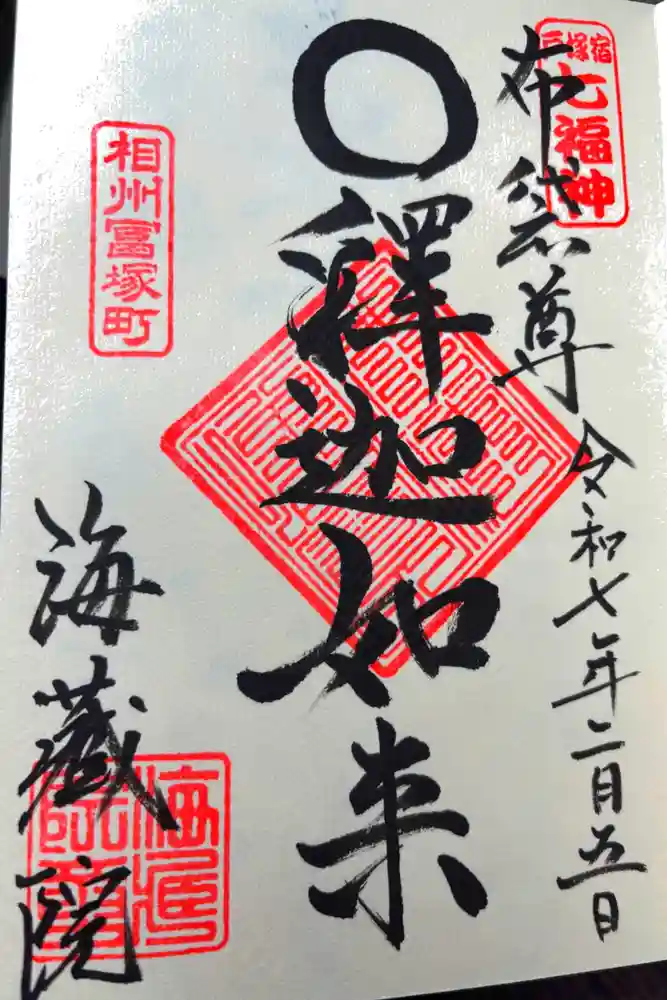 戸塚宿
七福神
布袋尊
令和七年二月五日
〇釋迦如来
相州冨塚町
海蔵院